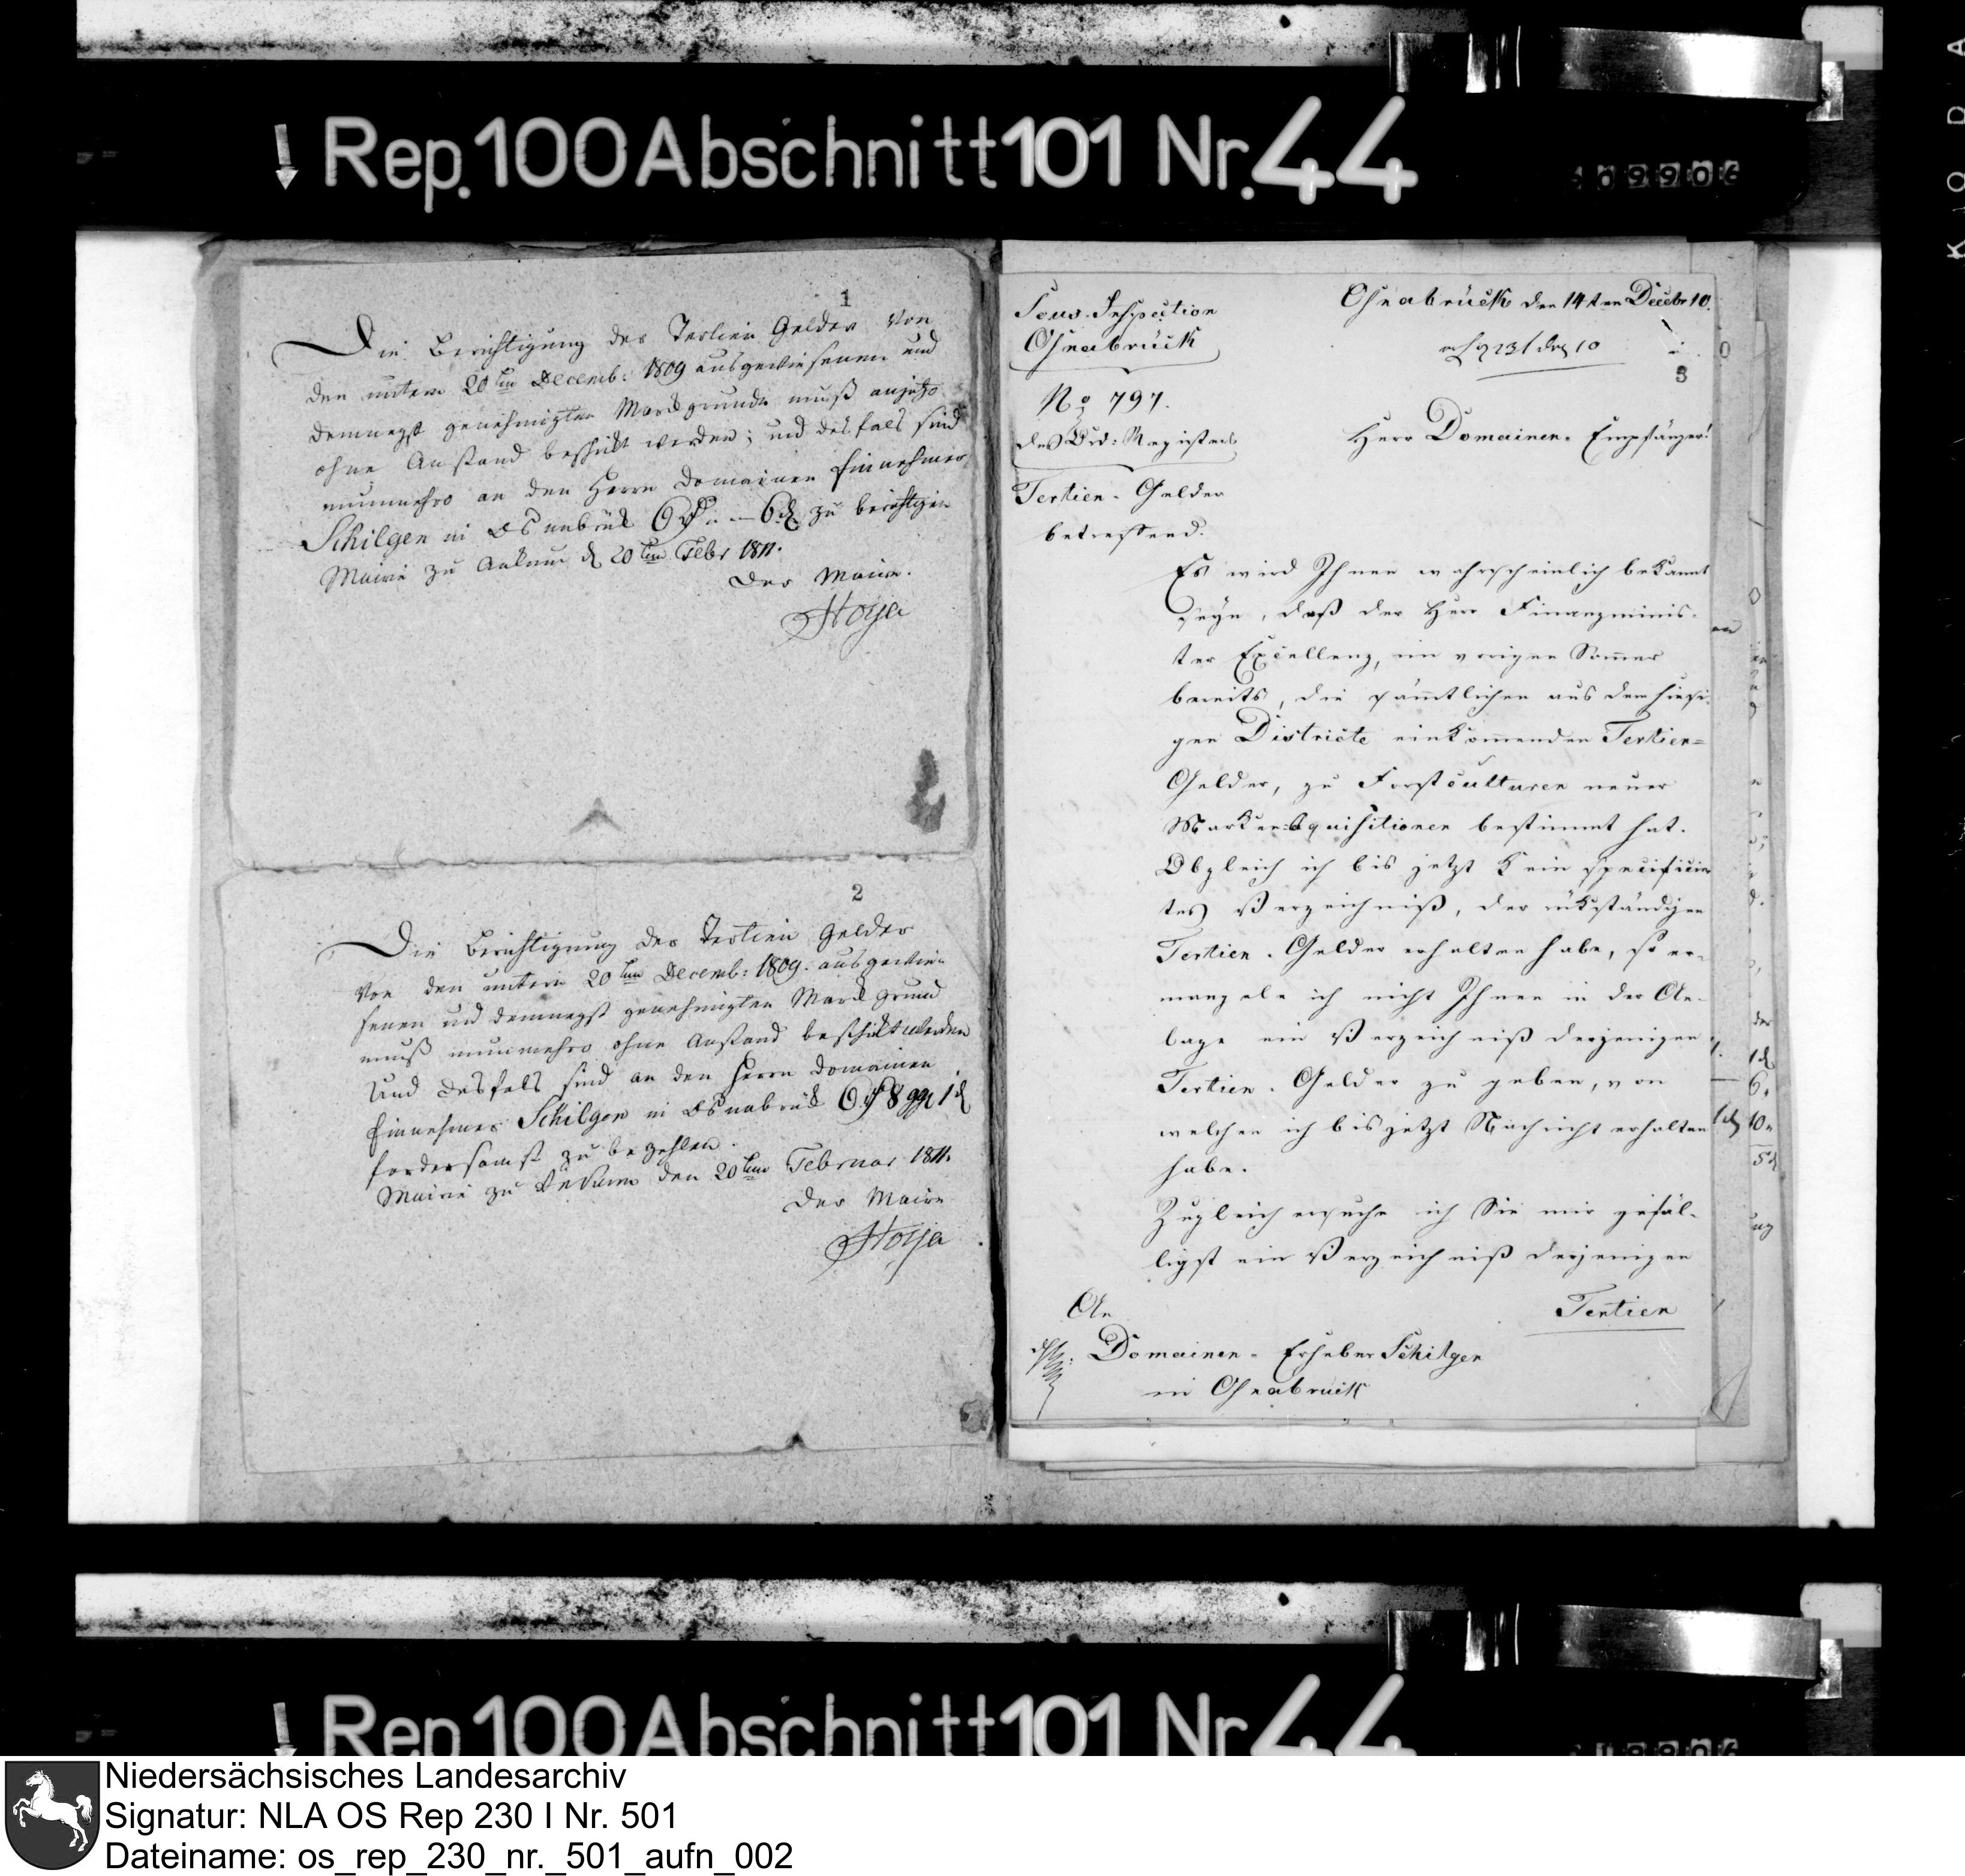 Rep. 100 Abschnitt 101 Nr. 44
09906
KODA
1
Die Berichtigung der Tertien Gelder von
den unterm 20ten Decemb: 1809 ausgewiesenen und
demnegst genehmigten Markgrunde muß anjetzo
ohne Anstand beschickt werden; und desfals sind
nunmehro an den Herrn Domainen Einnehmer
Schilgen in Osnabrück 6 - 6 zu berichtigen
Mairie zu Ankum d 20ten Febr 1811.
Der Maire.
Hoya
2
Die Berichtigung der Tertien Gelder
von den unterm 20ten Decemb: 1809. ausgewie-
senen und demnegst genehmigten Mark Grund
muß nunmehro ohne Anstand beschickt werden
Und desfals sind an den Herrn Domainen
Einnehmer Schilgen in Osnabrück 6 8 ggr 1 d
fordersamst zu bezahlen.
Mairie zu Ankum den 20ten Februar 1811.
Der Maire
Hoya
Sous-Inspection
Osnabrück
No 797.
des Brd: Registers
Tertien-Gelder
betreffend.
Osnabrück den 14ten Decebr 10.
3
Herr Domainen-Empfänger!
Es wird Ihnen wahrscheinlich bekannt
seyn, daß der Herr Finanzminis-
ter Excellenz, im vorigen Sommer
bereits, die sämtlichen aus dem hiesi-
gen Districte einkommenden Tertien=
Gelder, zu Forstculturen neuer
Marken-Acquisitionen bestimmt hat.
Obgleich ich bis jetzt kein specificir-
tes Verzeichniß, der rückständigen
Tertien-Gelder erhalten habe, so er-
mangele ich nicht Ihnen in der An-
lage ein Verzeichniß derjenigen
Tertien-Gelder zu geben, von
welchen ich bis jetzt Nachricht erhalten
habe.
Zugleich ersuche ich Sie mir gefäl-
ligst ein Verzeichniß derjenigen
Tertien
An
Domainen-Erheber Schilgen
in Osnabrück
Rep. 100 Abschnitt 101 Nr. 44
Niedersächsisches Landesarchiv
Signatur: NLA OS Rep 230 I Nr. 501
Dateiname: os_rep_230_nr._501_aufn_002